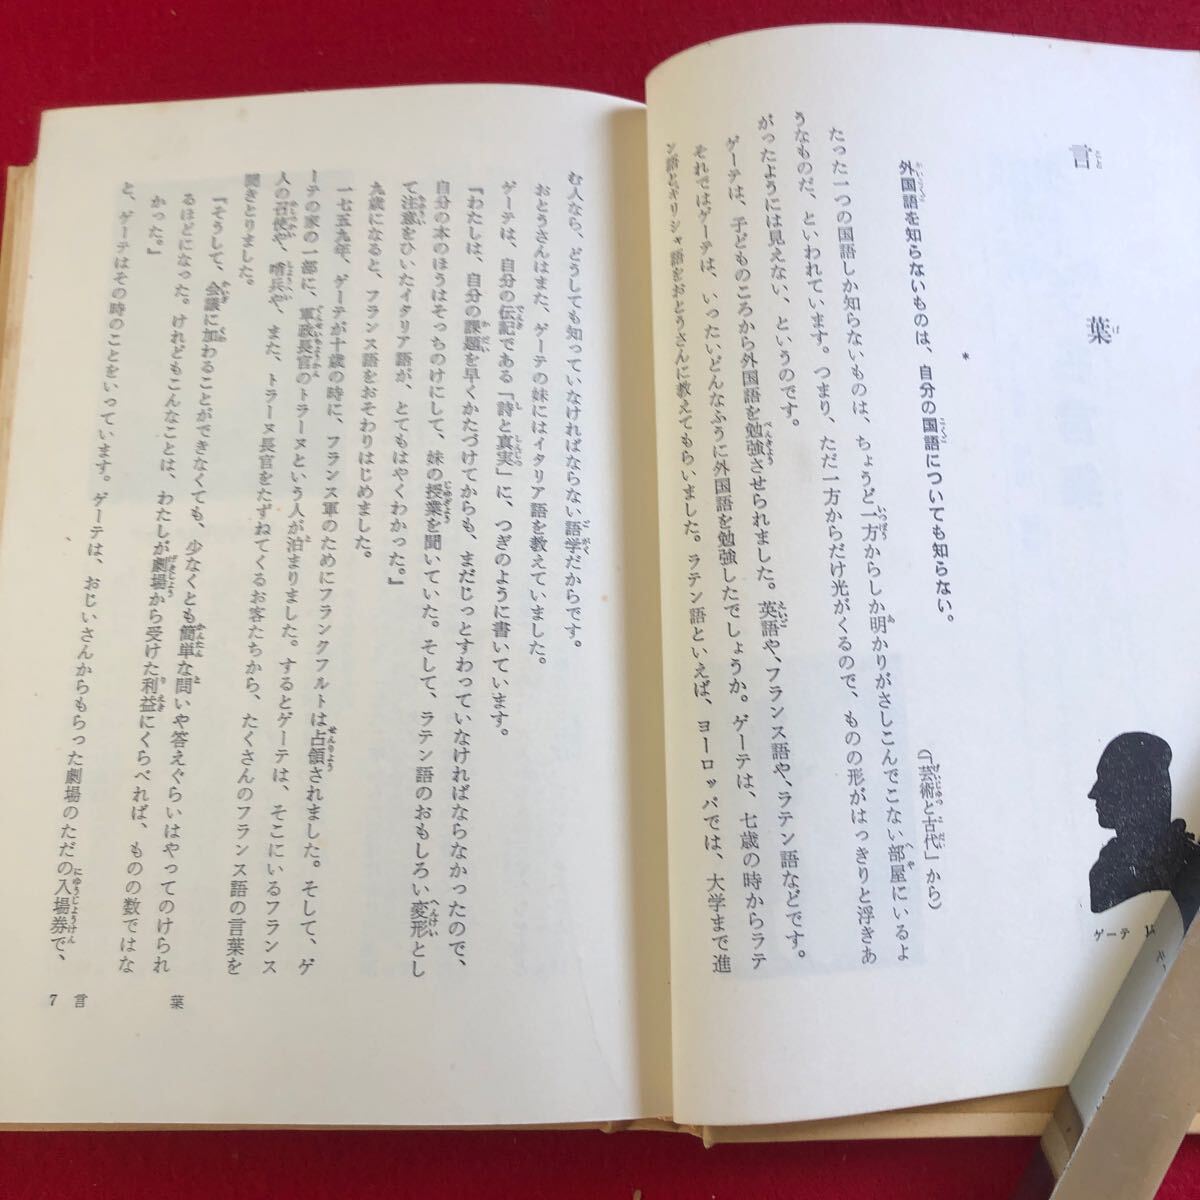 言葉
外国語を知らないものは、自分の国語についても知らない。
（「芸術と古代」から）
*
たった一つの国語しか知らないものは、ちょうど一方からしか明かりがさしこんでこない部屋にいるよ
うなものだ、といわれています。つまり、ただ一方からだけ光がくるので、ものの形がはっきりと浮きあ
がったようには見えない、というのです。
ゲーテは、子どものころから外国語を勉強させられました。英語や、フランス語や、ラテン語などです。
それではゲーテは、いったいどんなふうに外国語を勉強したでしょうか。ゲーテは、七歳の時からラテ
ン語とギリシャ語をおとうさんに教えてもらいました。ラテン語といえば、ヨーロッパでは、大学まで進
ゲーテ
む人なら、どうしても知っていなければならない語学だからです。
おとうさんはまた、ゲーテの妹にはイタリア語を教えていました。
ゲーテは、自分の伝記である「詩と真実」に、つぎのように書いています。
『わたしは、自分の課題を早くかたづけてからも、まだじっとすわっていなければならなかったので、
自分の本のほうはそっちのけにして、妹の授業を聞いていた。そして、ラテン語のおもしろい変形とし
て注意をひいたイタリア語が、とてもはやくわかった。』
九歳になると、フランス語をおそわりはじめました。
一七五九年、ゲーテが十歳の時に、フランス軍のためにフランクフルトは占領されました。そして、ゲ
ーテの家の一部に、軍政長官のトラーヌという人が泊まりました。するとゲーテは、そこにいるフランス
人の召使や、哨兵や、また、トラーヌ長官をたずねてくるお客たちから、たくさんのフランス語の言葉を
聞きとりました。
『そうして、会議に加わることができなくても、少なくとも簡単な問いや答えぐらいはやってのけられ
るほどになった。けれどもこんなことは、わたしが劇場から受けた利益にくらべれば、ものの数ではな
かった。』
と、ゲーテはその時のことをいっています。ゲーテは、おじいさんからもらった劇場のただの入場券で、
7 言葉